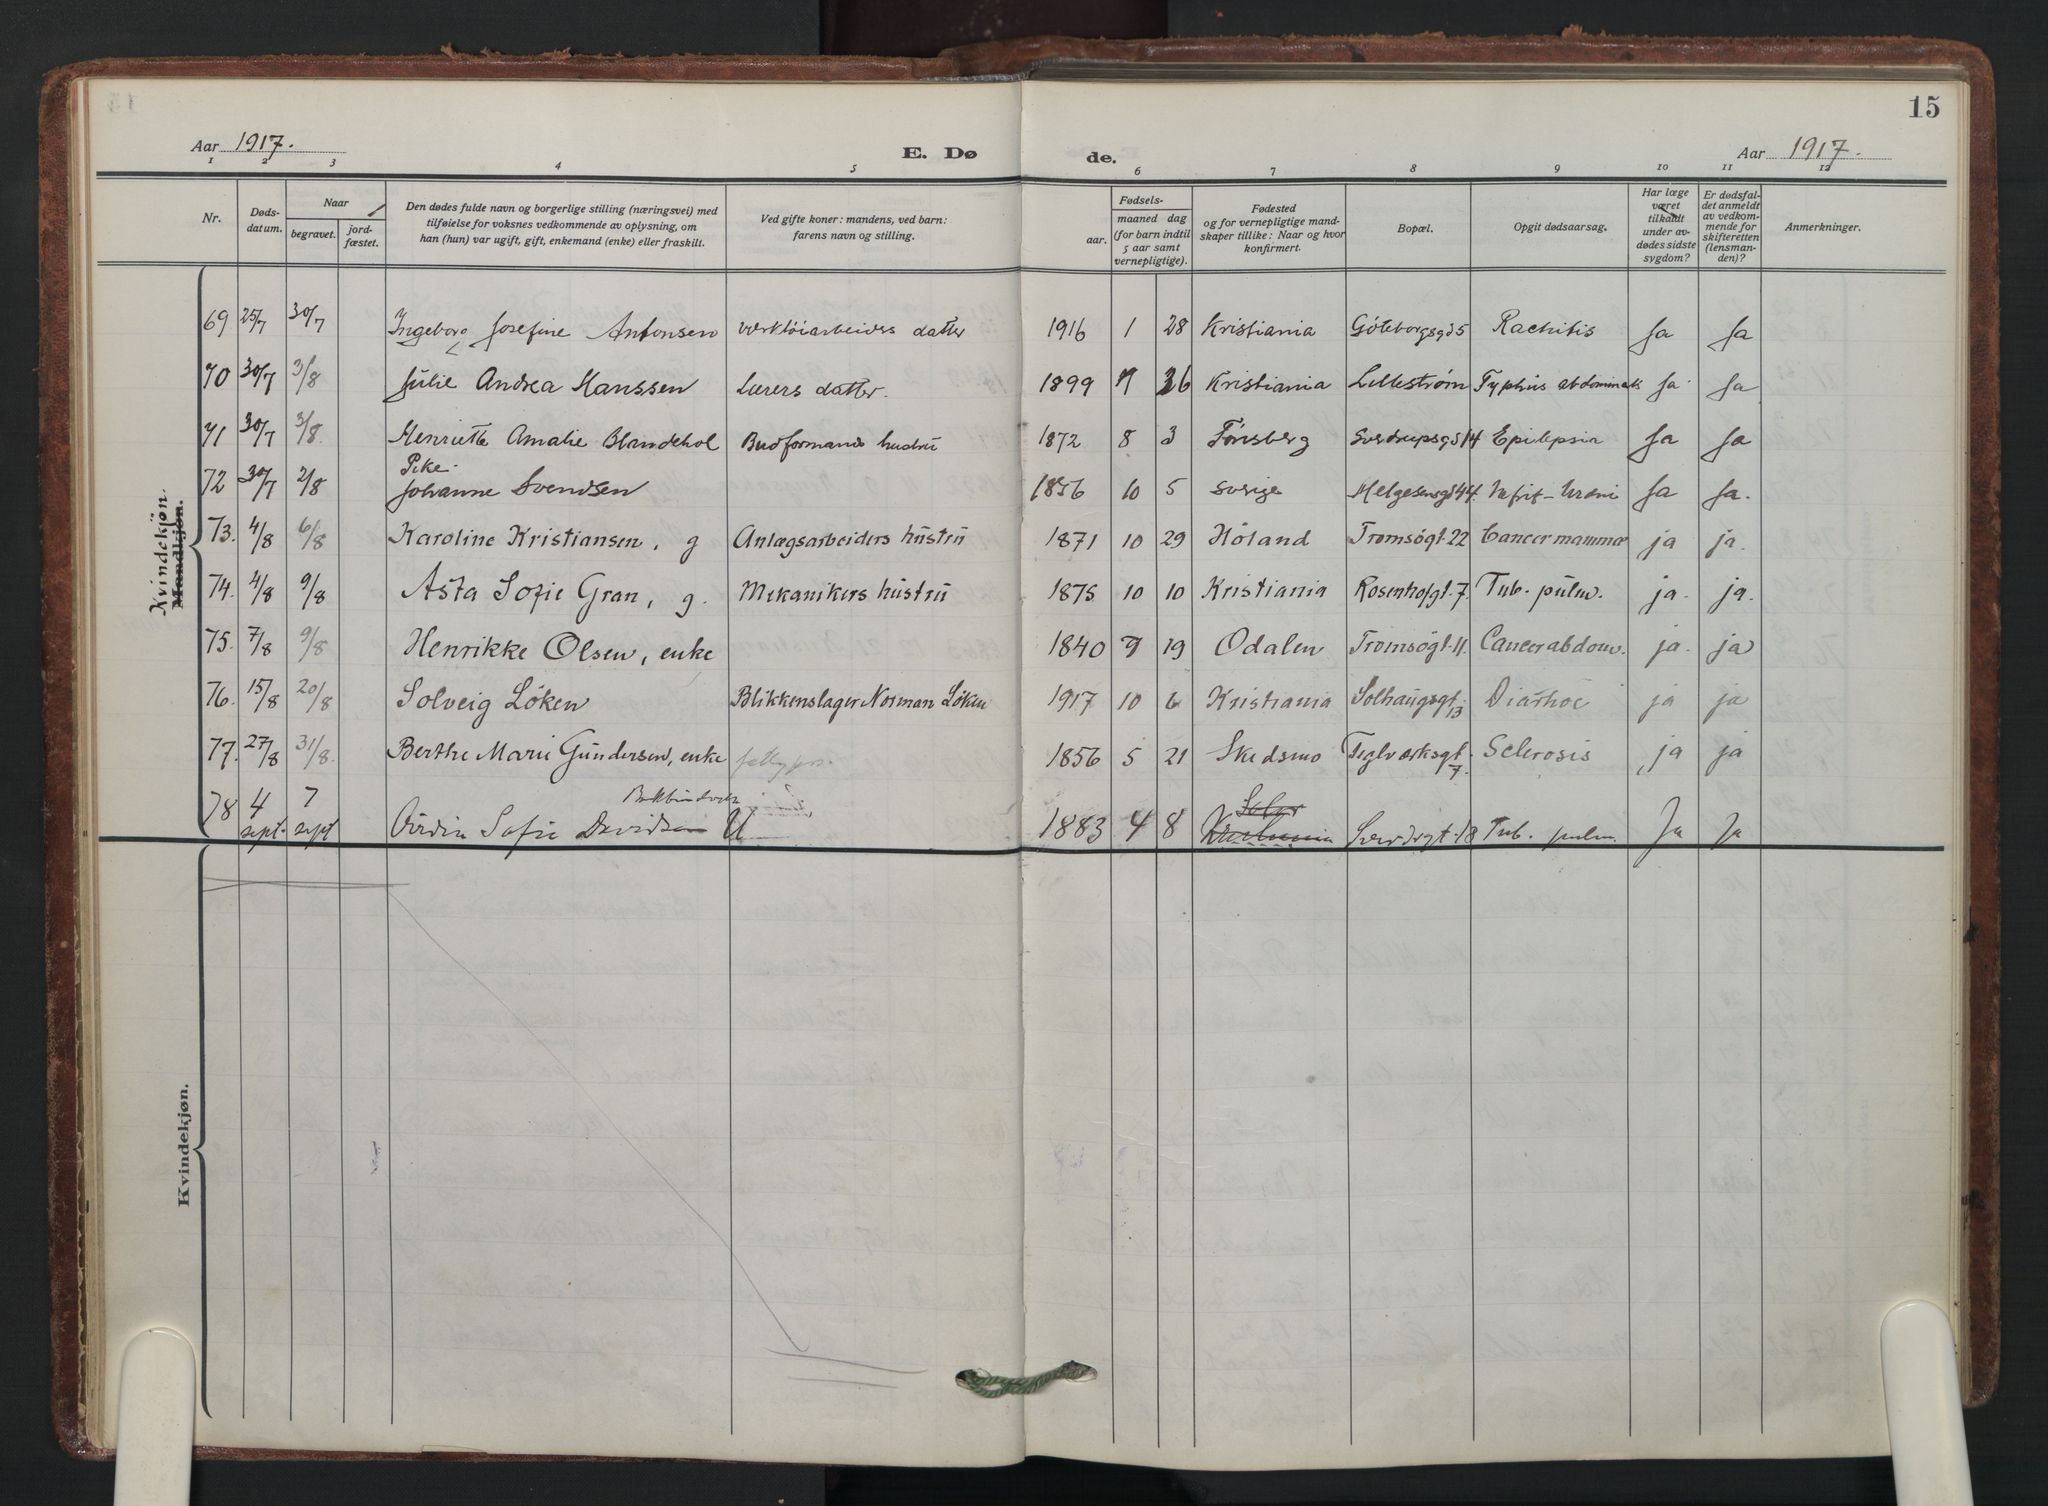 15
Aar 1917.
E. Dø
de.
Aar 1917.
1 2 3 4 5 6 7 8 9 10 11 12
Nr.
Døds-
datum.
Naar
begravet.
jord-
fæstet.
Den dødes fulde navn og borgerlige stilling (næringsvei) med
tilføielse for voksnes vedkommende av oplysning, om
han (hun) var ugift, gift, enkemand (enke) eller fraskilt.
Ved gifte koner: mandens, ved barn:
farens navn og stilling.
Fødsels-
aar.
maaned dag
(for barn indtil
5 aar samt
vernepligtige).
Fødested
og for vernepligtige mand-
skaper tillike: Naar og hvor
konfirmert.
Bopæl.
Opgit dødsaarsag.
Har læge
været
tilkaldt
under av-
dødes sidste
sygdom?
Er dødsfal-
det anmeldt
av vedkom-
mende for
skifteretten
(lensman-
den)?
Anmerkninger.
Kvindekjøn.
Mandkjøn.
69 25/7 30/7 Ingeborg Josefine Antonsen Verktöiarbeiders datter 1916 1 28 Kristiania Göteborgsgd 5 Rachitis Ja Ja
70 30/7 3/8 Julie Andrea Hanssen Lærers datter. 1899 26 Kristiania Lillestrøm Typhus abdominalis Ja Ja
71 30/7 3/8. Henriette Amalie Budformands hustru 1872 8 3 Tönsberg Sverdrupsgd 14 Epilepsia Ja Ja
Pike.
72 30/7 2/8 Johanne Svendsen 1856 10 5 Sverige Helgesensgd 44. Ja Ja.
73. 4/8 6/8 Karoline Kristiansen, g Anlægsarbeiders hustru 1871 10 29 Höland Tromsögt. 22 Cancer mammæ ja ja.
74. 4/8 9/8 Asta Sofie Gran, g. Mekanikers hustru 1875 10 10 Kristiania Rosenhofgt. 7. Tub. pulm. ja. ja.
75. 7/8 9/8 Henrikke Olsen, enke 1840 9 19 Odalen Tromsögt. 11. Cancer abdom. ja. ja
76. 15/8 20/8 Solveig Löken Blikkenslager Norman Löken 1917 10 6 Kristiania Solhaugsgt. 13 Diarhoe ja ja
77. 27/8 31/8. Berthe Marie Gundersen, enke 1856 5 21 Skedsmo Teglverksgt. 7. Sclerosis ja ja
78 4 sept. 7 sept Sofie Davidsen U 1883 4 8 Kristiania Sverdrgt. 18 Tub. pulm. Ja Ja
Kvindekjøn.